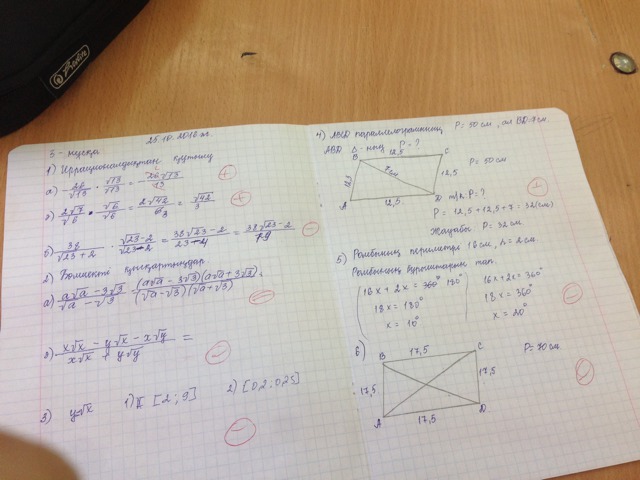 25.10.2016 ж.
3 - нұсқа
1) Иррационалдықтан құтылу
а) -26/√13 · √13/√13 = -26√13/13
2√7/√6 · √6/√6 = 2√42/6 3 = √42/3
38/√23+2 · √23-2/√23-2 = 38√23-2/23-4 = 38√23-2/19
2) Бөлшекті қысқартыңдар
а) a√a - 3√3/√a - √3 = (a√a - 3√3)(a√a + 3√3)/(√a - √3)(√a + √3)
x√x - y√x - x√y/x√x + y√y =
3) y=√x 1) [2; 9] 2) [0,2; 0,25]
4) ABCD параллелограмның P = 50 см, ал BD = 7 см.
ABD Δ-ның P = ?
B 12,5 C
12,5 7 см 12,5
A 12,5 D
P = 50 см
т/к P = ?
P = 12,5 + 12,5 + 7 = 32 (см)
Жауабы P = 32 см
5) Ромбының периметрі 16 см, h = 2 см.
Ромбының бұрыштарын тап.
16x + 2x = 360° 180°
18x = 180°
x = 10°
16x + 2x = 360°
18x = 360°
x = 20°
6)
B 17,5 C
17,5 17,5
A 17,5 D
P = 70 см